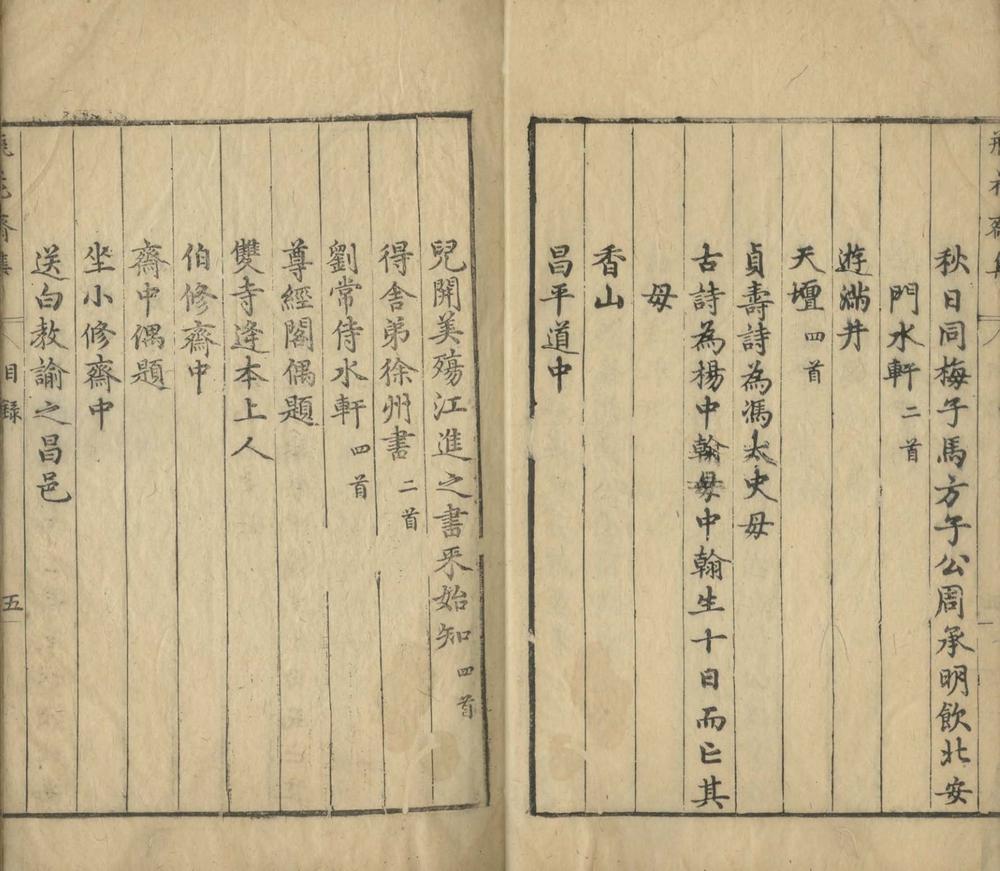 瓶花齋集
秋日同梅子馬方子公周承明飲北安
門水軒 二首
遊滿井
天壇 四首
貞壽詩為馮太史母
古詩為楊中翰母中翰生十日而亡其
母
香山
昌平道中
兒開美殤江進之書來始知 四首
得舍弟徐州書 二首
劉常侍水軒 四首
尊經閣偶題
雙寺逢本上人
伯修齋中
齋中偶題
坐小修齋中
送白教諭之昌邑
瓶花齋集 目錄 五